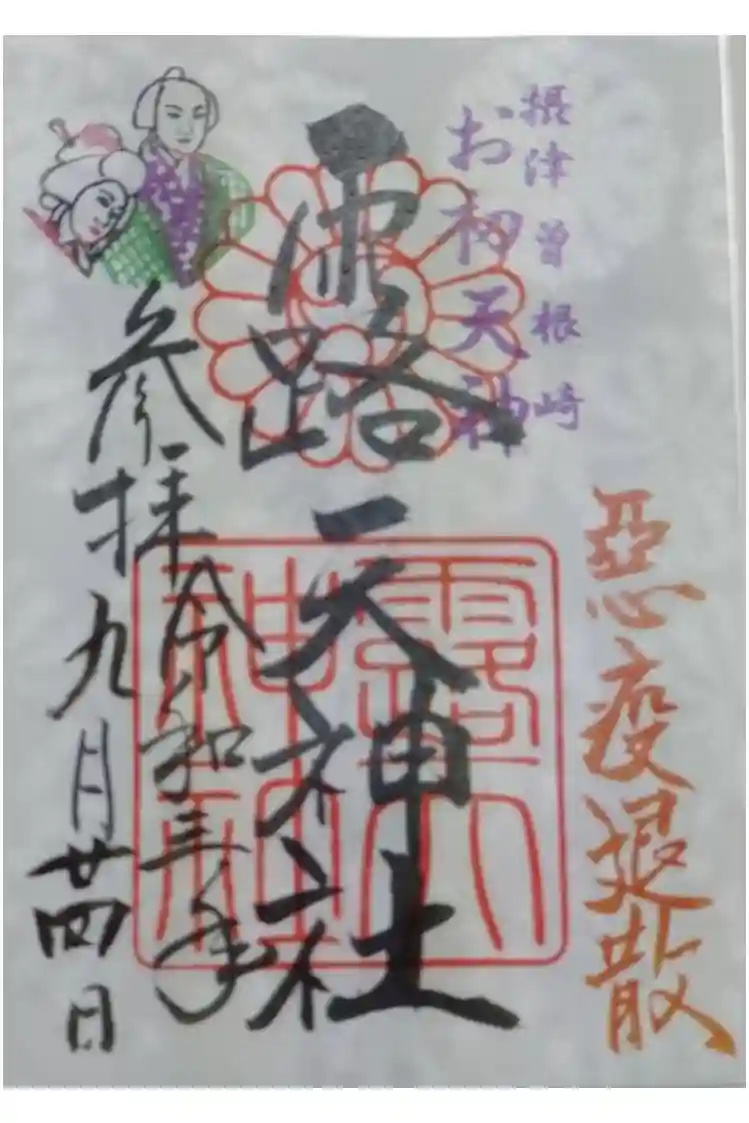 悪疫退散
摂津曽根崎
お初天神
露天神社
参拝
令和三年
九月廿四日
露天神社